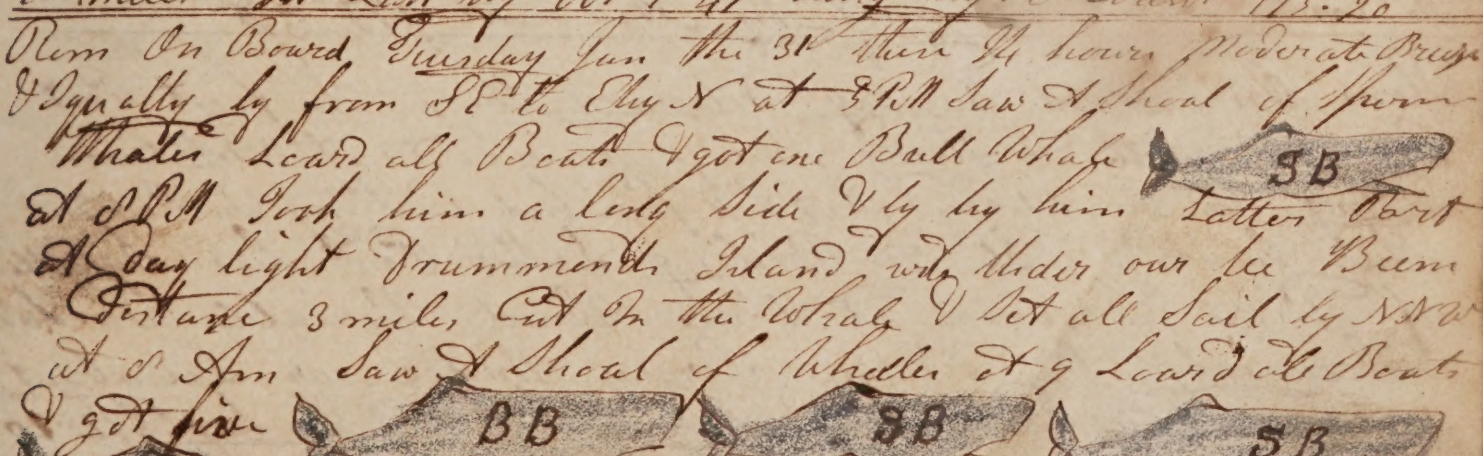 Rem On Board Tuesday Jan the 31 these 24 hours Moderate Breezes
& Squally by from SE to E by N at 5 PM Saw A Shoal of Sperm
Whales Loard all Boats & got one Bull Whale SB
At 8 PM Took him a long Side & ly by him Latter Part
At Day light Drummonds Island was Under our lee Beem
Distane 3 miles Cut In the Whale & Set all Sail by NNW
at 8 Am Saw A Shoal of Whales At 9 Loard all Boats
& got five BB SB SB